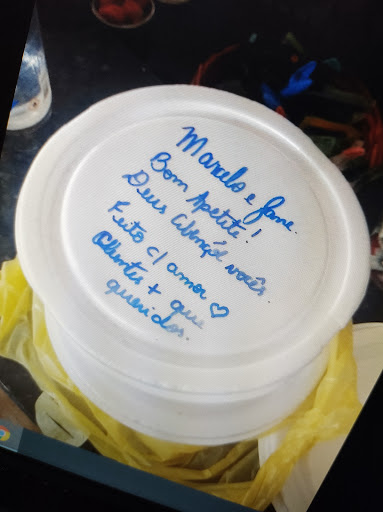 Marcelo e Jane.
Bom Apetite!
Deus abençõe vocês.
Feito c/ amor ♡
Clientes + que
queridos.